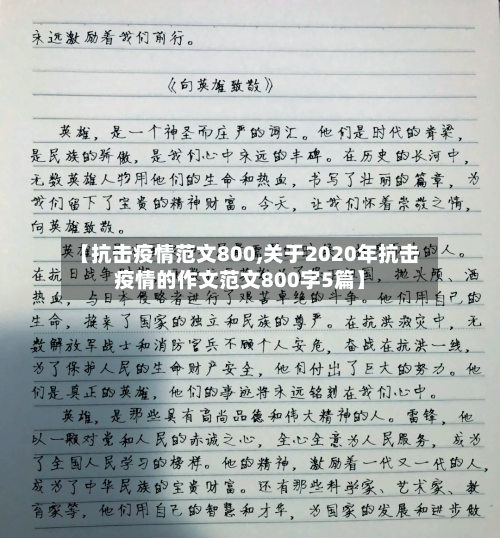 永远激励着我们前行。
《向英雄致敬》
英雄，是一个神圣而庄严的词汇。他们是时代的脊梁，
是民族的骄傲，是我们心中永远的丰碑。在历史的长河中，
无数英雄人物用他们的生命和热血，书写了壮丽的篇章，为
我们留下了宝贵的精神财富。今天，让我们怀着崇敬之情，
向英雄致敬。
英 的人。
【抗击疫情范文800,关于2020年抗击
疫情的作文范文800字5篇】
在抗日战争 国，抛头颅、洒
热血，与日本侵略者进行了艰苦卓绝的斗争。他们用自己的
生命，换来了国家的独立和民族的尊严。在抗洪救灾中，无
数解放军战士和消防官兵不顾个人安危，奋战在抗洪一线，
为了保护人民的生命财产安全，他们付出了巨大的努力。他
们是真正的英雄，他们的事迹将永远铭刻在我们心中。
英雄，是那些具有高尚品德和伟大精神的人。雷锋，他
以一颗对党和人民的赤诚之心，全心全意为人民服务，成为
了全国人民学习的榜样。他的精神，激励着一代又一代的人，
成为了中华民族的宝贵财富。还有那些科学家、艺术家、教
育家等，他们用自己的智慧和才华，为国家的发展和进步做